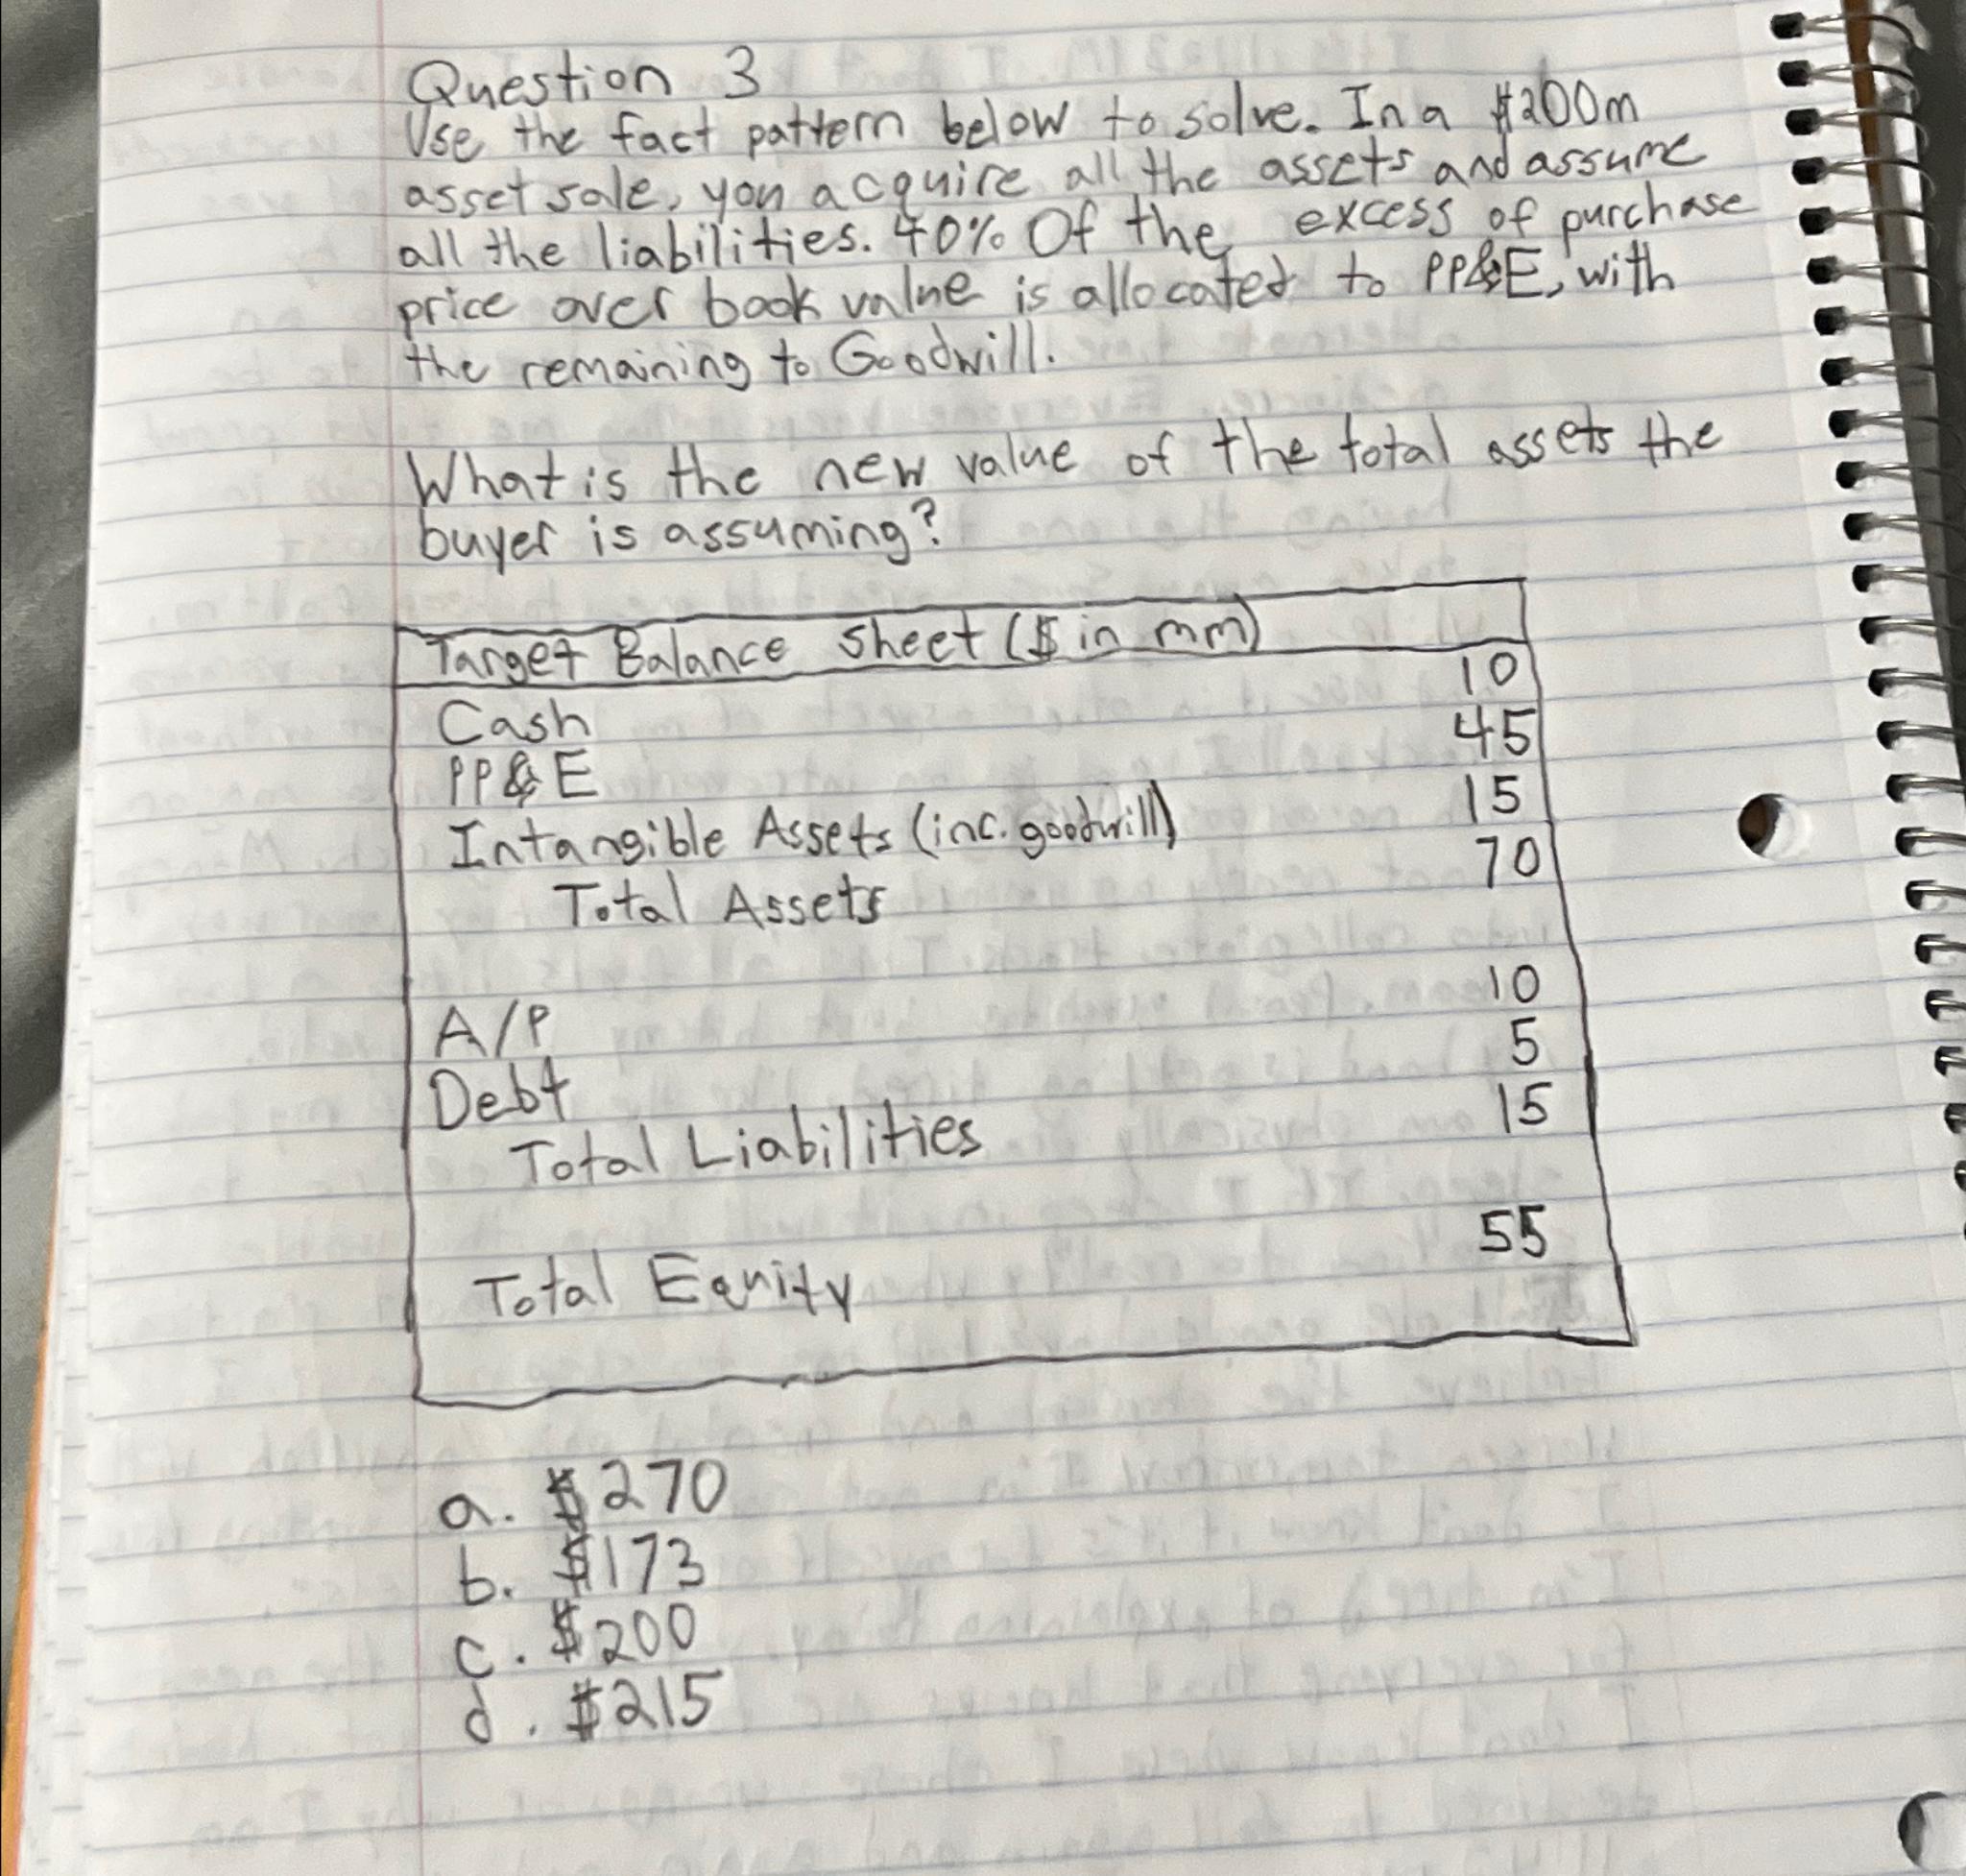 Question 3
Use the fact pattern below to solve. In a $200m
asset sale, you acquire all the assets and assume
all the liabilities. 40% Of the excess of purchase
price over book value is allocated to PP&E, with
the remaining to Goodwill.
What is the new value of the total assets the
buyer is assuming?
Target Balance Sheet ($ in mm)
Cash 10
PP&E 45
Intangible Assets (inc. goodwill) 15
Total Assets 70
A/P 10
Debt 5
Total Liabilities 15
Total Equity 55
a. $270
b. $173
c. $200
d. $215